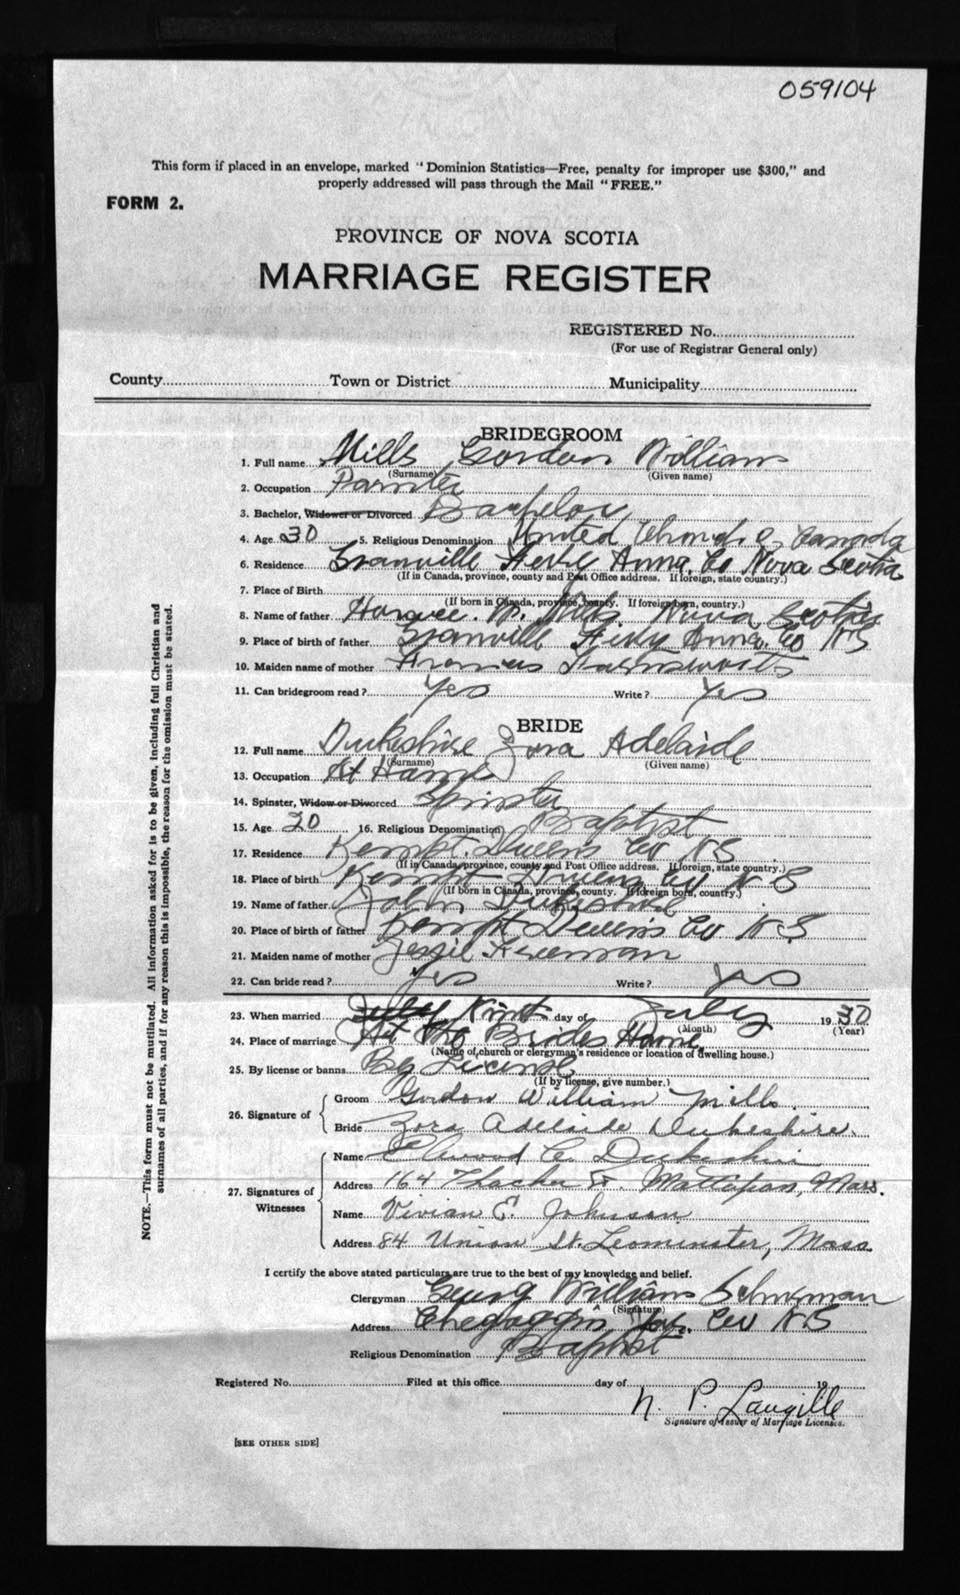 059104
This form if placed in an envelope, marked "Dominion Statistics—Free, penalty for improper use $300," and
properly addressed will pass through the Mail "FREE."
FORM 2.
PROVINCE OF NOVA SCOTIA
MARRIAGE REGISTER
REGISTERED No.
(For use of Registrar General only)
County Town or District Municipality
BRIDEGROOM
1. Full name Mills Gordon William
(Surname) (Given name)
2. Occupation
3. Bachelor, Widower or Divorced Bachelor
4. Age 30 5. Religious Denomination United Church of Canada
6. Residence Granville Ferry Anna. Co Nova Scotia
(If in Canada, province, county and Post Office address. If foreign, state country.)
7. Place of Birth
(If born in Canada, province, county. If foreign born, country.)
8. Name of father Horace. M. Mills. Nova Scotia
9. Place of birth of father Granville Ferry Anna. Co NS
10. Maiden name of mother
11. Can bridegroom read? Yes Write? Yes
BRIDE
12. Full name Dukeshire Zora Adelaide
(Surname) (Given name)
13. Occupation At Home
14. Spinster, Widow or Divorced Spinster
15. Age 20 16. Religious Denomination Baptist
17. Residence Kempt. Queens Co NS
(If in Canada, province, county and Post Office address. If foreign, state country.)
18. Place of birth Kempt Queens Co N S
(If born in Canada, province, county. If foreign born, country.)
19. Name of father John Dukeshire
20. Place of birth of father Kempt Queens Co NS
21. Maiden name of mother Jessie Freeman
22. Can bride read? yes Write? yes
23. When married July First day of July 1930
(Month) (Year)
24. Place of marriage At the Brides Home
(Name of church or clergyman's residence or location of dwelling house.)
25. By license or banns By License
(If by license, give number.)
26. Signature of
Groom Gordon William Mills.
Bride Zora Adelaide Dukeshire.
27. Signatures of Witnesses
Name Elwood C. Dukeshire
Address 164 Thacher St. Mattapan, Mass.
Name Vivian E. Johnson
Address 84 Union St. Leominster, Mass.
I certify the above stated particulars are true to the best of my knowledge and belief.
Clergyman William Schurman
(Signature)
Address Chegoggin Yar. Co NS
Religious Denomination Baptist
Registered No. Filed at this office day of 19
N. P. Langille
Signature of Issuer of Marriage Licenses.
[SEE OTHER SIDE]
NOTE.—This form must not be mutilated. All information asked for is to be given, including full Christian and
surnames of all parties, and if for any reason this is impossible, the reason for the omission must be stated.